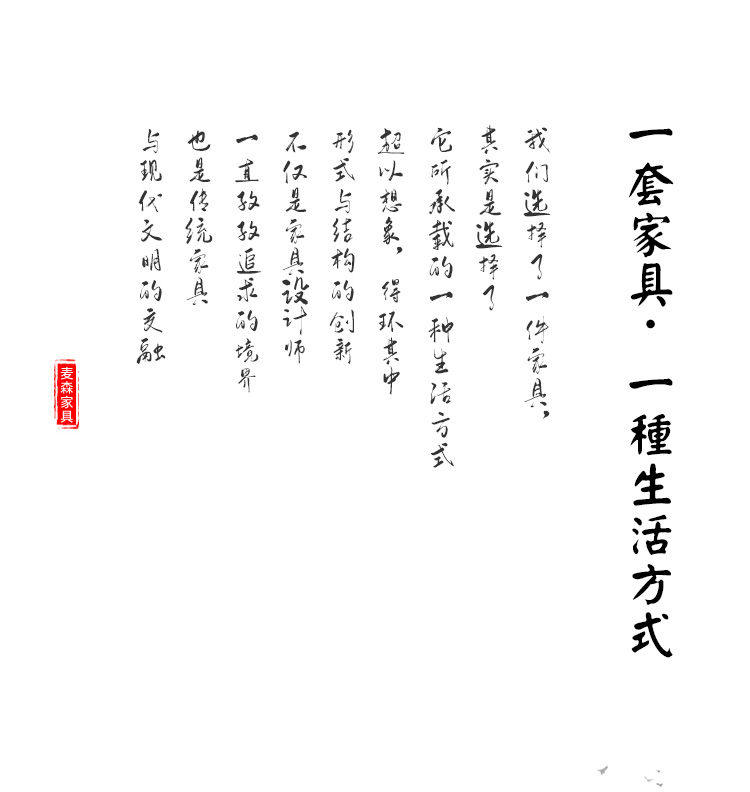 一套家具· 一種生活方式
我们选择了一件家具，
其实是选择了
它所承载的一种生活方式
超以想象，得环其中
形式与结构的创新
不仅是家具设计师
一直孜孜追求的境界
也是传统家具
与现代文明的交融
麦森家具